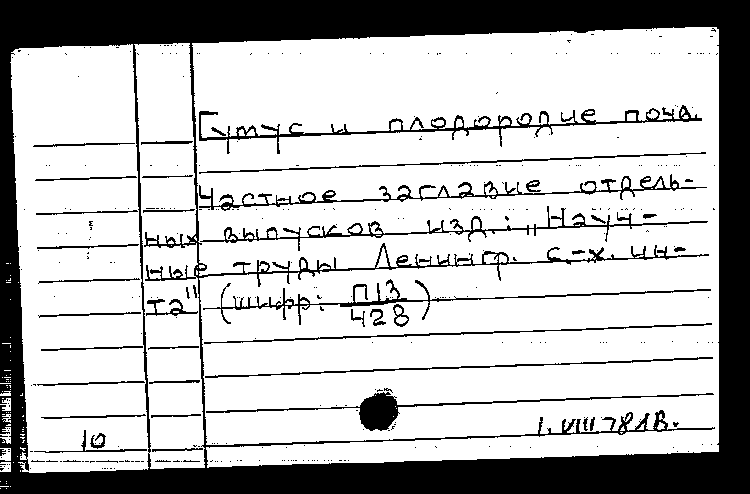 Гумус и плодородие почв.
Частное заглавие отдель-
ных выпусков изд.: „Науч-
ные труды Ленингр. с.-х. ин-
та" (шифр: П13/428)
10
1.VIII.78 ЛВ.